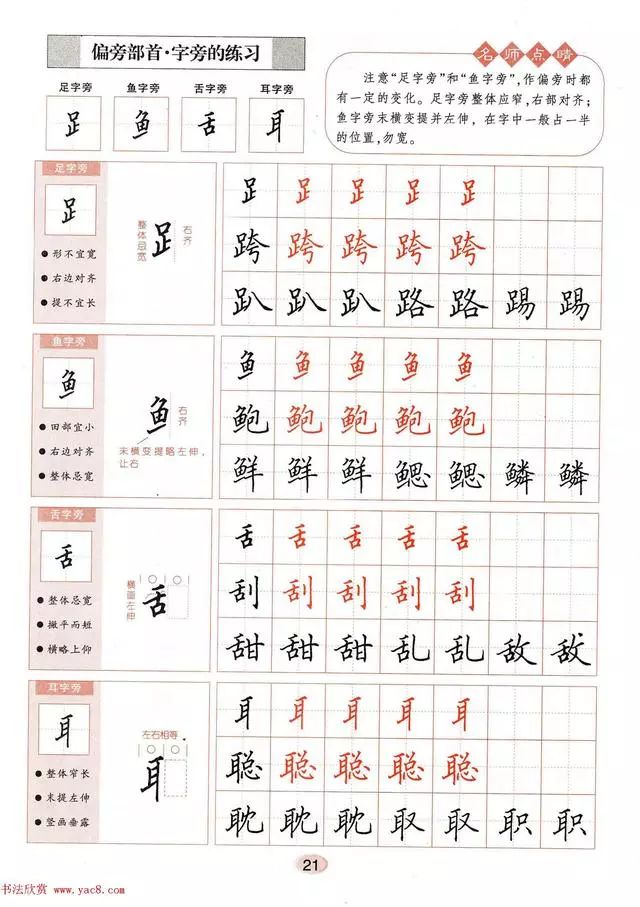 偏旁部首·字旁的练习
足字旁 鱼字旁 舌字旁 耳字旁
𧾷 鱼 舌 耳
名师点睛
注意“足字旁”和“鱼字旁”,作偏旁时都
有一定的变化。足字旁整体应窄,右部对齐;
鱼字旁末横变提并左伸,在字中一般占一半
的位置,勿宽。
足字旁
𧾷
●形不宜宽
●右边对齐
●提不宜长
整体忌宽
𧾷
右齐
𧾷 𧾷 𧾷 𧾷 𧾷
跨 跨 跨 跨 跨
趴 趴 趴 路 路 踢 踢
鱼字旁
鱼
●田部宜小
●右边对齐
●整体忌宽
鱼
右齐
末横变提略左伸,
让右
鱼 鱼 鱼 鱼 鱼
鲍 鲍 鲍 鲍 鲍
鲜 鲜 鲜 鳃 鳃 鳞 鳞
舌字旁
舌
●整体忌宽
●撇平而短
●横略上仰
横画左伸
舌
舌 舌 舌 舌 舌
刮 刮 刮 刮 刮
甜 甜 甜 乱 乱 敌 敌
耳字旁
耳
●整体窄长
●末提左伸
●竖画垂露
左右相等
耳
耳 耳 耳 耳 耳
聪 聪 聪 聪 聪
耽 耽 耽 取 取 职 职
21
书法欣赏
www.yac8.com